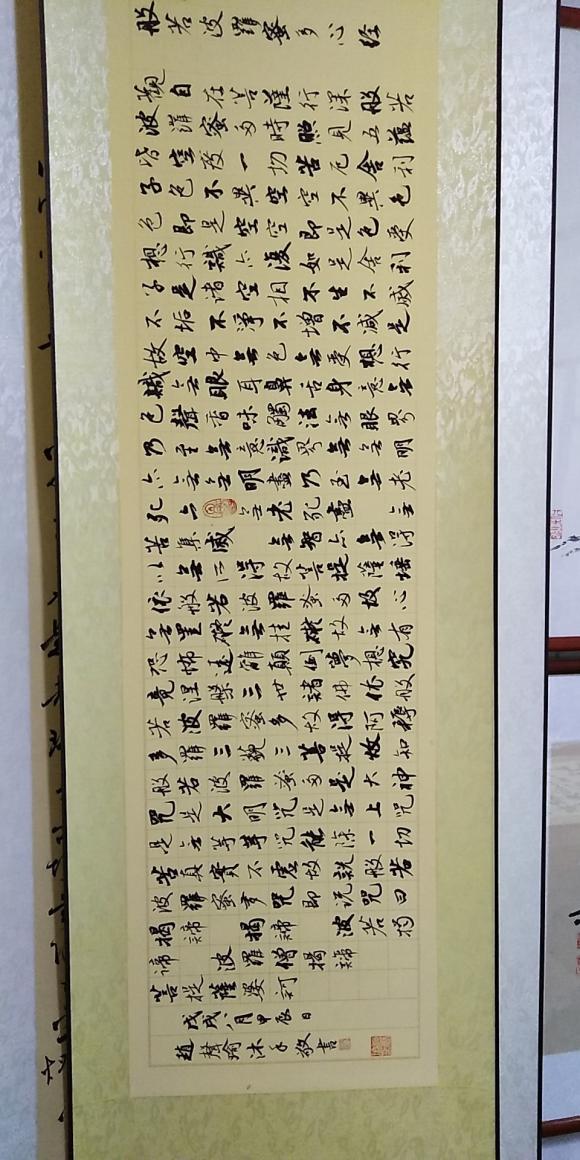 般若波羅蜜多心经
觀自在菩薩行深般若
波羅蜜多時照見五蘊
皆空度一切苦厄舍利
子色不異空空不異色
色即是空空即是色受
想行識亦復如是舍利
子是諸空相不生不滅
不垢不淨不增不減是
故空中無色無受想行
識無眼耳鼻舌身意無
色聲香味觸法無眼界
乃至無意識界無無明
亦無無明盡乃至無老
死亦無老死盡無
苦集滅無智亦無得
以無所得故菩提薩埵
依般若波羅蜜多故心
無罣礙無挂礙故無有
恐怖遠離顛倒夢想究
竟涅槃三世諸佛依般
若波羅蜜多故得阿耨
多羅三藐三菩提故知
般若波羅蜜多是大神
咒是大明咒是無上咒
是無等等咒能除一切
苦真實不虛故說般若
波羅蜜多咒即说咒曰
揭諦揭諦波若揭
諦波羅僧揭諦
菩提薩婆訶
戊戌八月甲辰日
趙聲瑜沐手敬書